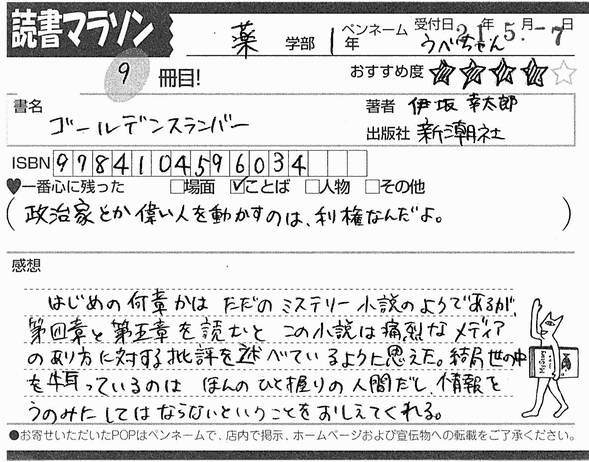 読書マラソン
薬 学部 1年
ペンネーム うべちゃん
受付日 21年 5月 -7日
9 冊目!
おすすめ度 ★★★★☆
書名
ゴールデンスランバー
著者 伊坂 幸太郎
出版社 新潮社
ISBN 9784104596034
♥一番心に残った □場面 ☑ことば □人物 □その他
(政治家とか偉い人を動かすのは、利権なんだよ。)
感想
はじめの何章かは ただの ミステリー小説のようであるが、
第四章と第五章を読むと この小説は痛烈なメディア
のあり方に対する批評を述べているように思えた。結局世の中
を牛耳っているのは ほんのひと握りの人間だし、情報を
うのみにしてはならないということをおしえてくれる。
●お寄せいただいたPOPはペンネームで、店内で掲示、ホームページおよび宣伝物への転載をご了承ください。